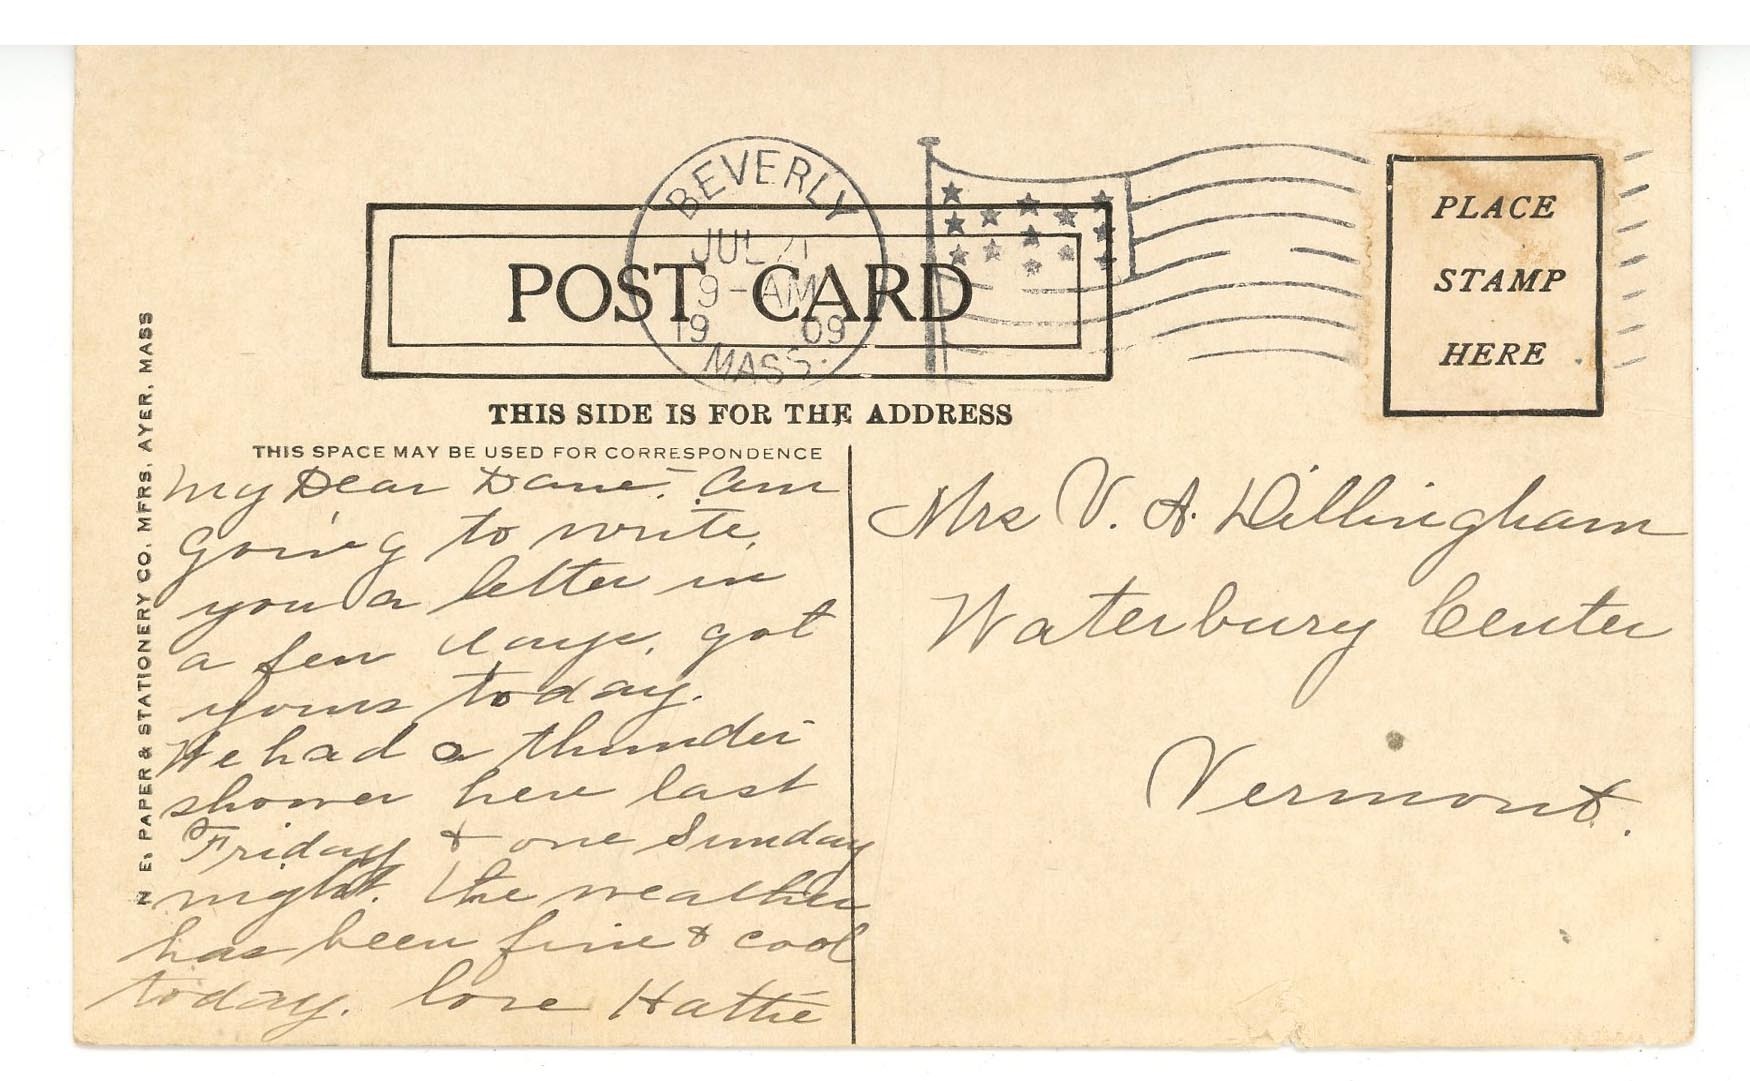 BEVERLY
JUL 21
9-AM
19 09
MASS.
POST CARD
THIS SIDE IS FOR THE ADDRESS
PLACE
STAMP
HERE
THIS SPACE MAY BE USED FOR CORRESPONDENCE
N. E. PAPER & STATIONERY CO. MFRS. AYER, MASS
My Dear Dane:- Am
going to write
you a letter in
a few days, got
yours today.
We had a thunder
shower here last
Friday & one Sunday
night. The weather
has been fine & cool
today. love Hattie
Mrs V. A. Dillingham
Waterbury Center
Vermont.